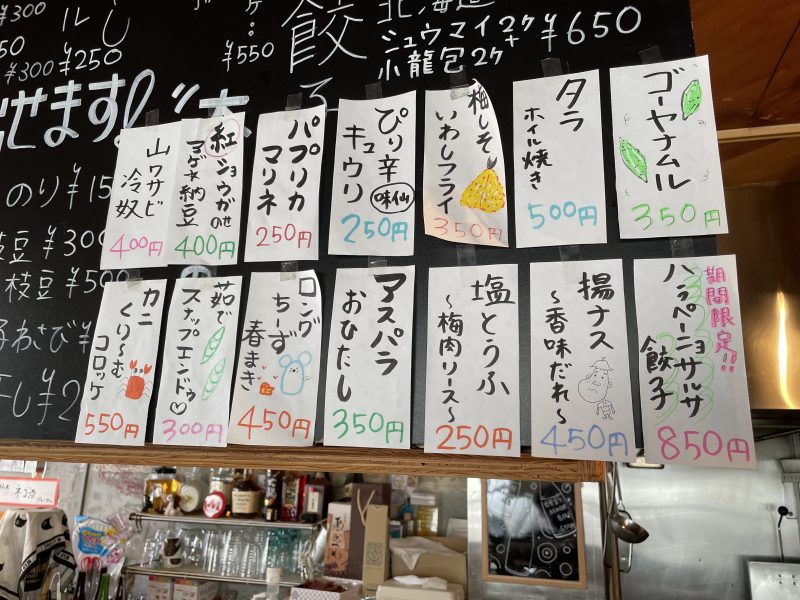 ¥300
¥300
¥250
¥550
餃子
北海道
シュウマイ2ケ+
小龍包2ケ
¥650
せます!
のり ¥15
枝豆 ¥300
枝豆 ¥500
わさび ¥
¥2
ゴーヤナムル
350円
タラ
ホイル焼き
500円
梅しそ
いわしフライ
350円
ぴり辛
キュウリ
味仙
250円
パプリカ
マリネ
250円
紅ショウガのせ
マグロ納豆
400円
山ワサビ
冷奴
400円
期間限定!!
ハラペーニョサルサ
餃子
850円
揚ナス
～香味だれ～
450円
塩とうふ
～梅肉リース～
250円
アスパラ
おひたし
350円
ロング
ちーず
春まき
450円
茹で
スナップエンドゥ♡
300円
カニ
くり～む
コロッケ
550円